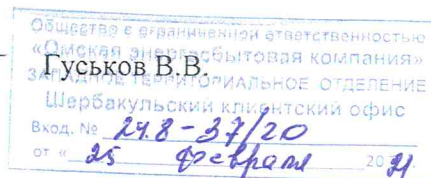 Общество с ограниченной ответственностью
«Омская энергосбытовая компания»
Гуськов В.В.
ЗАПАДНОЕ ТЕРРИТОРИАЛЬНОЕ ОТДЕЛЕНИЕ
Шербакульский клиентский офис
Вход. № 24.8-37/20
от « 25 февраля 2021.